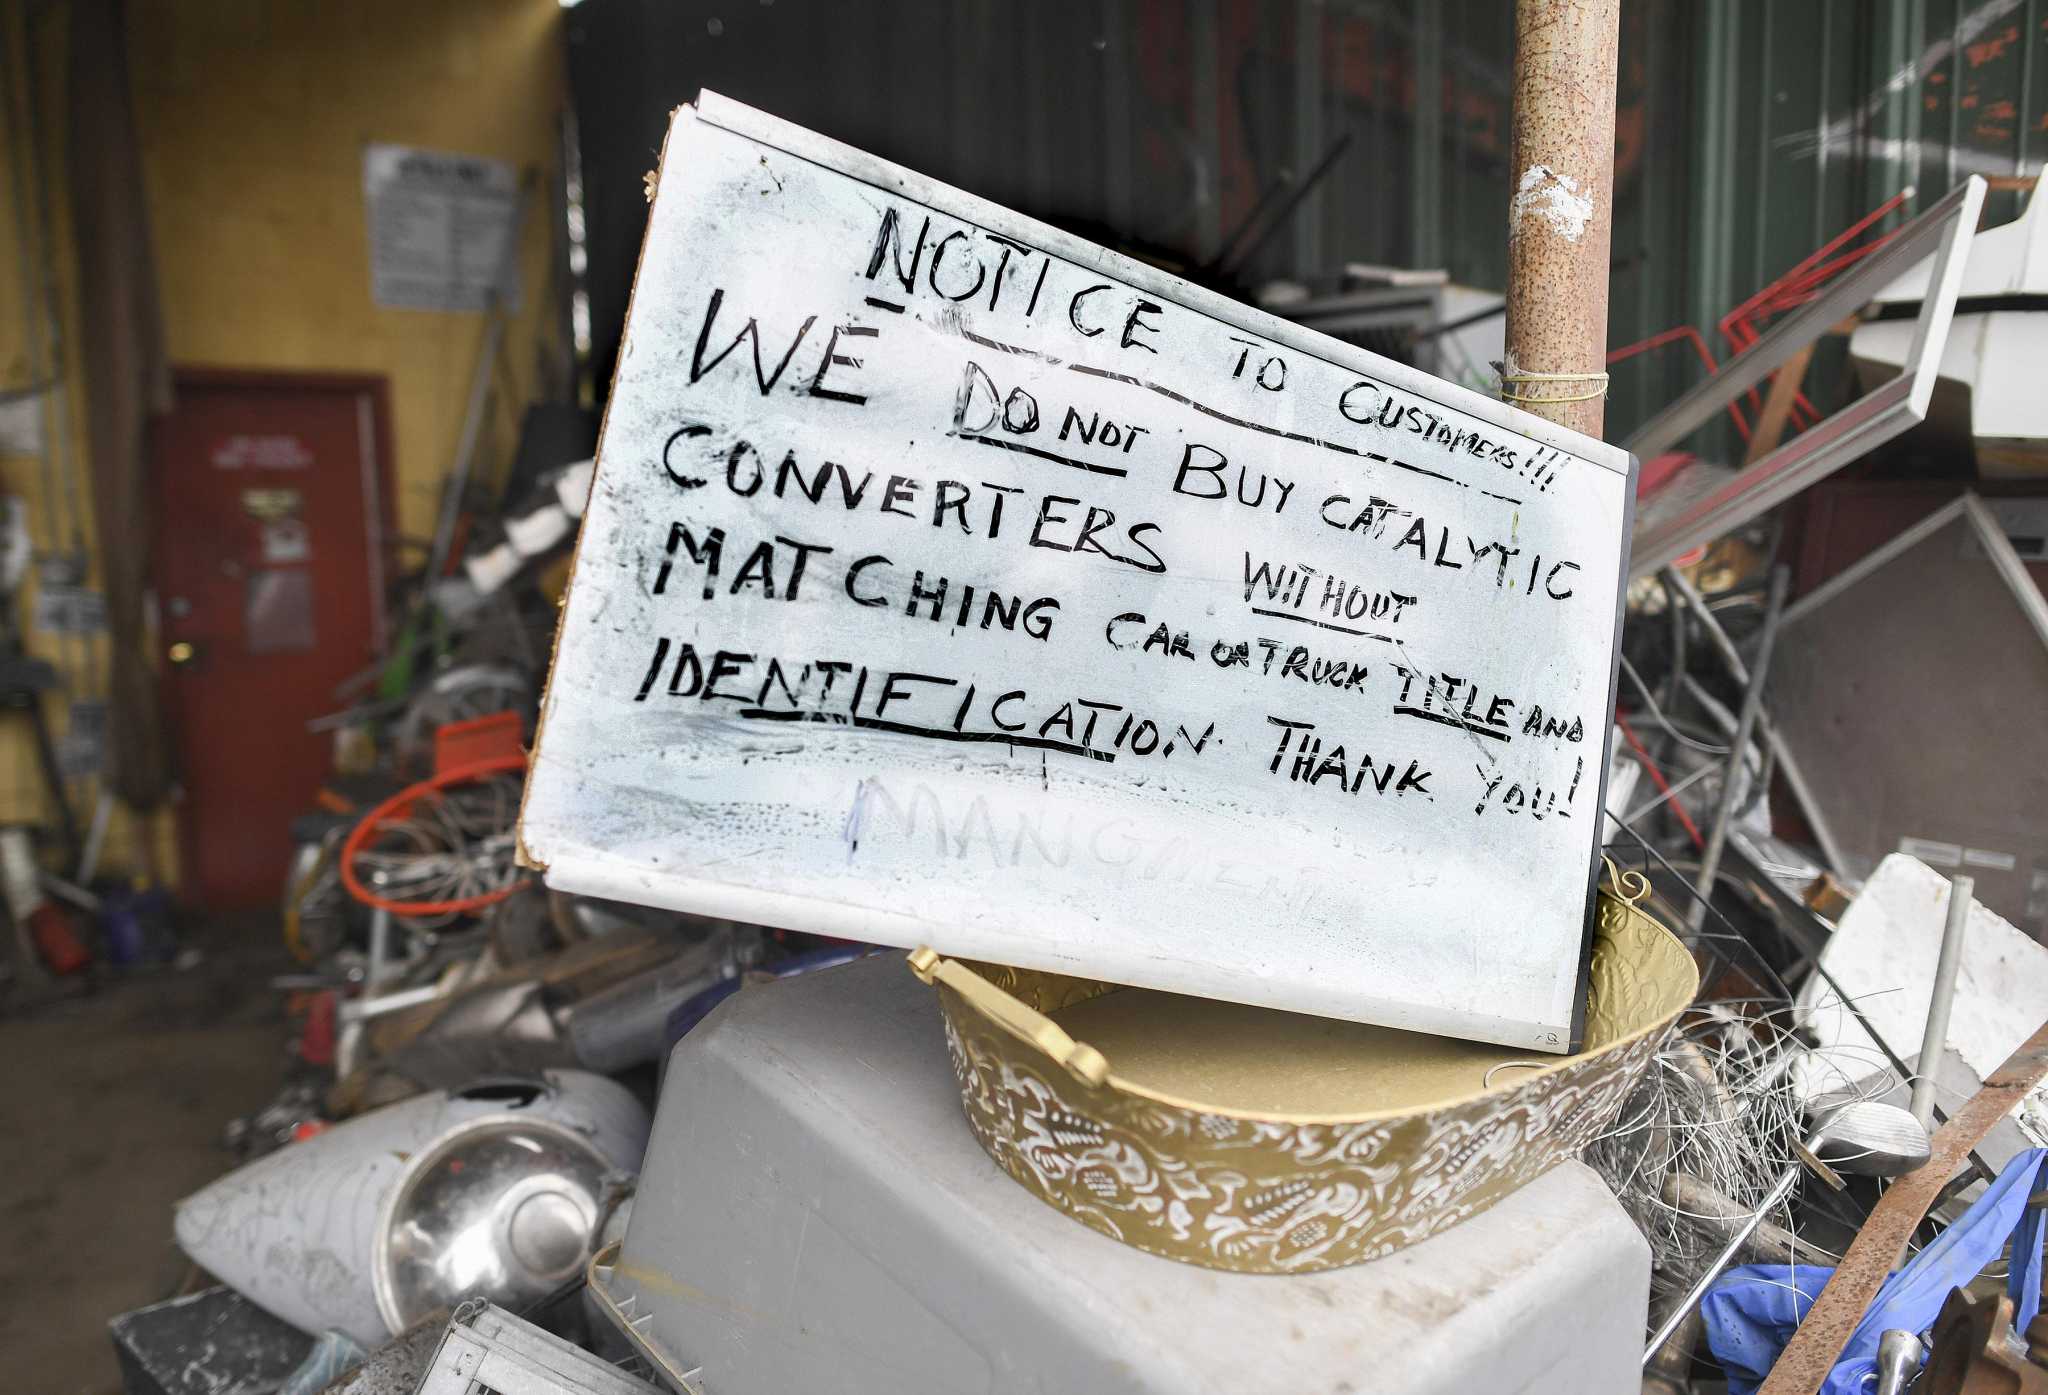 NOTICE TO CUSTOMERS!!!
WE DO NOT BUY CATALYTIC
CONVERTERS WITHOUT
MATCHING CAR OR TRUCK TITLE AND
IDENTIFICATION. THANK YOU!